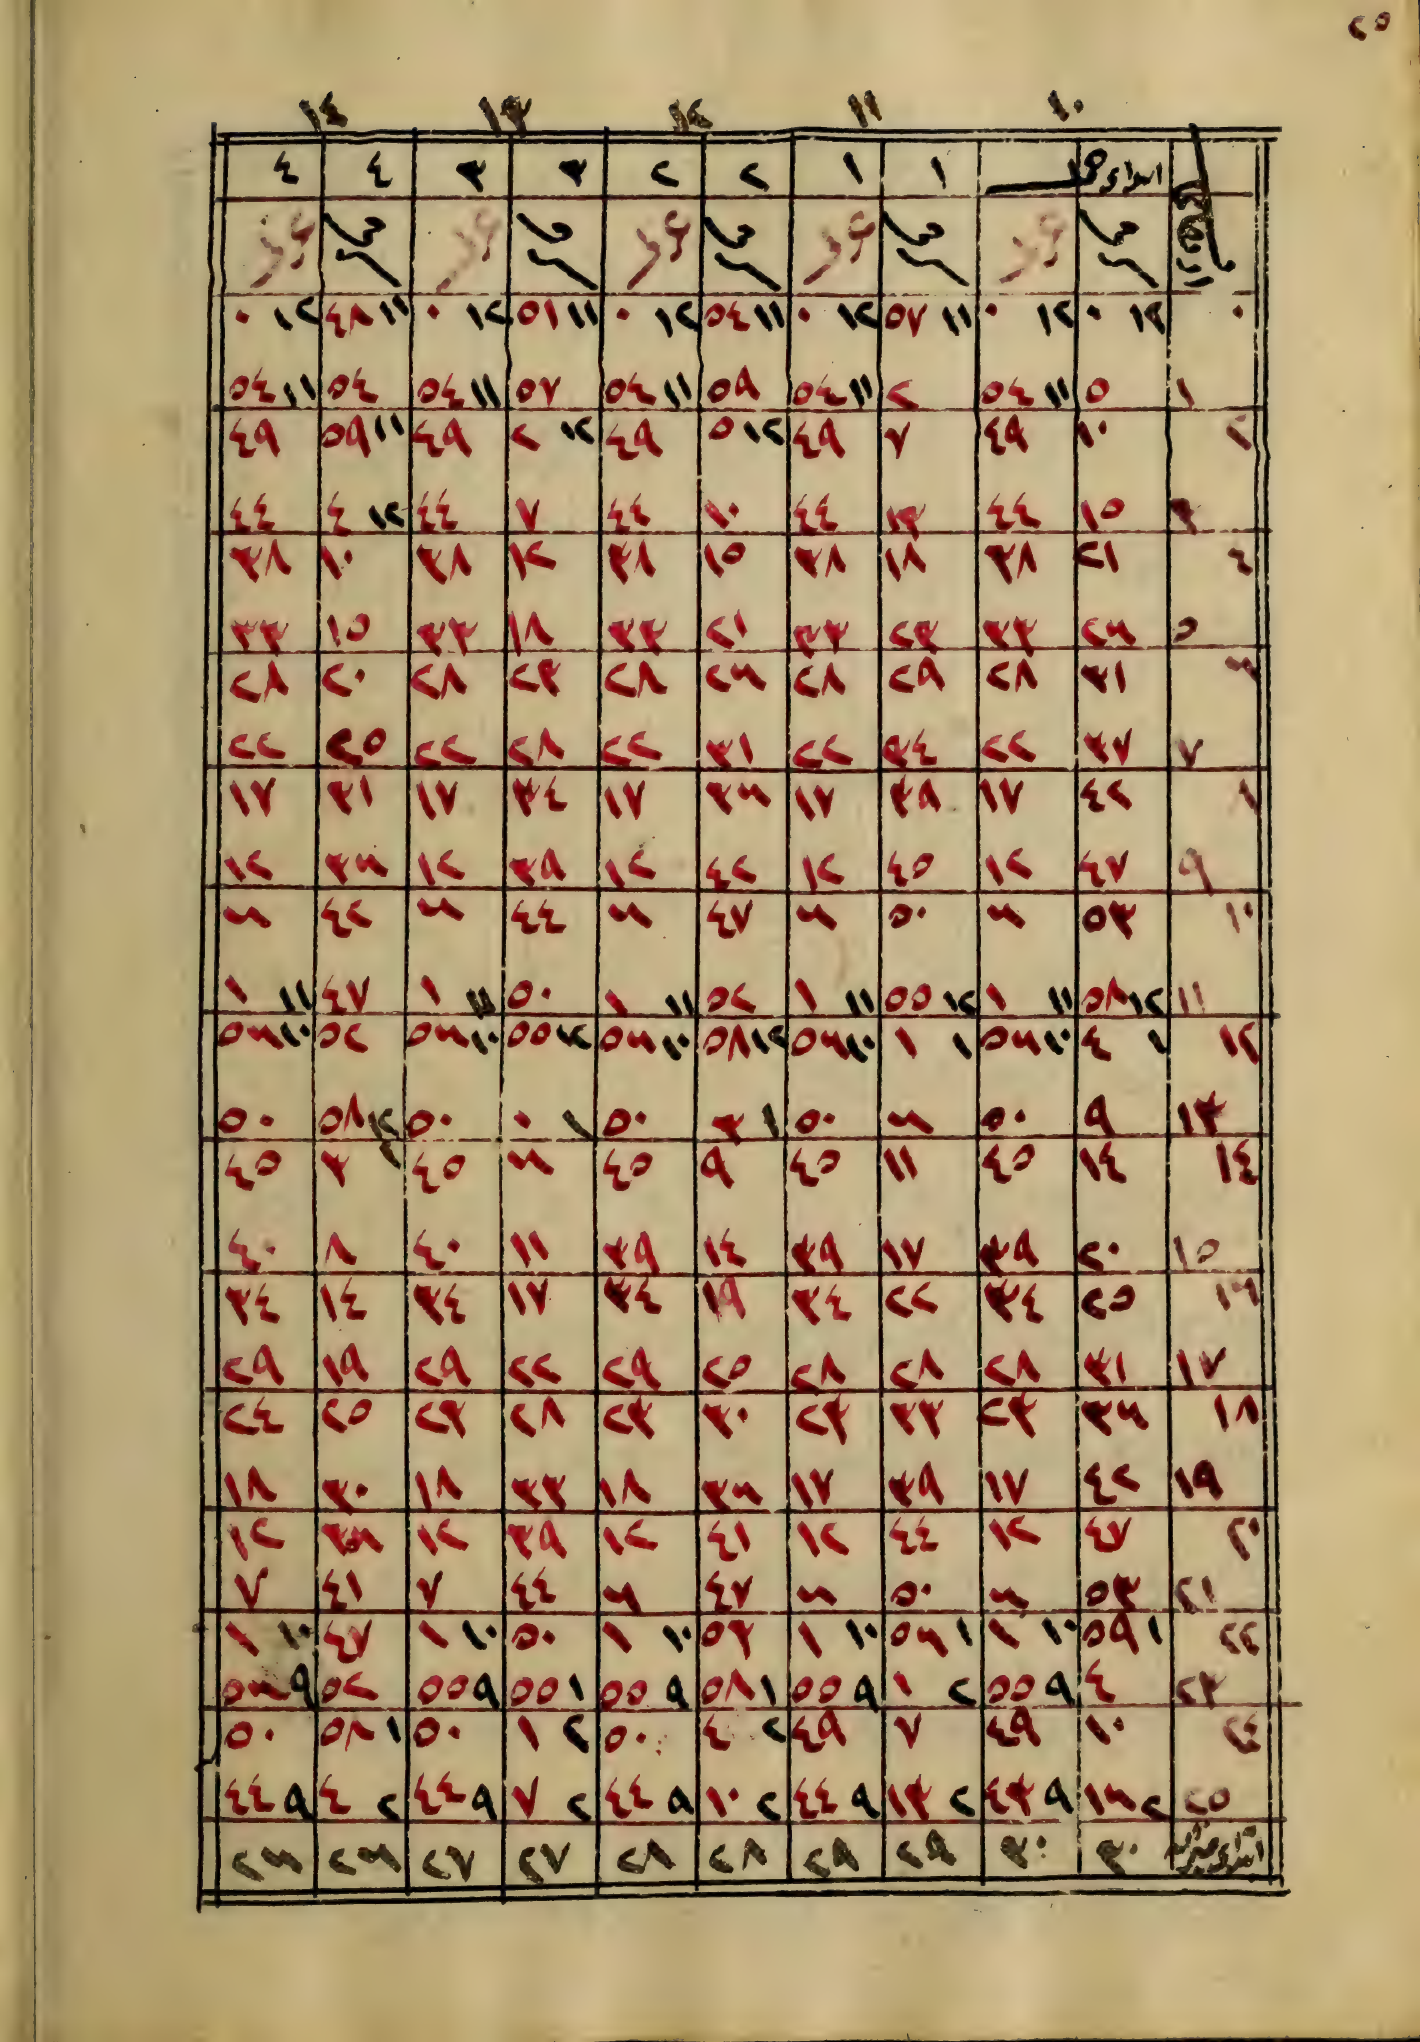 ٢٥
١٠ ١١ ١٢ ١٣ ١٤
١ ١ ٢ ٢ ٣ ٣ ٤ ٤
٠ ١٢ ٠ ١٢ ٠ ١١ ٥٧ ١٢ ٠ ١١ ٥٤ ١٢ ٠ ١١ ٥١ ١٢ ٠ ١١ ٤٨ ١٢ ٠
١ ٥ ١١ ٥٤ ٢ ١١ ٥٤ ٥٩ ١١ ٥٤ ٥٧ ١١ ٥٤ ٥٤ ١١ ٥٤
٢ ١٠ ٤٩ ٧ ٤٩ ١٢ ٥ ٤٩ ١٢ ٢ ٤٩ ١١ ٥٩ ٤٩
٣ ١٥ ٤٤ ١٣ ٤٤ ١٠ ٤٤ ٧ ٤٤ ١٢ ٤ ٤٤
٤ ٢١ ٣٨ ١٨ ٣٨ ١٥ ٣٨ ١٢ ٣٨ ١٠ ٣٨
٥ ٢٦ ٣٣ ٢٣ ٣٣ ٢١ ٣٣ ١٨ ٣٣ ١٥ ٣٣
٦ ٣١ ٢٨ ٢٩ ٢٨ ٢٦ ٢٨ ٢٣ ٢٨ ٢٠ ٢٨
٧ ٣٧ ٢٢ ٣٤ ٢٢ ٣١ ٢٢ ٢٨ ٢٢ ٢٥ ٢٢
٨ ٤٢ ١٧ ٣٩ ١٧ ٣٦ ١٧ ٣٤ ١٧ ٣١ ١٧
٩ ٤٧ ١٢ ٤٥ ١٢ ٤٢ ١٢ ٣٩ ١٢ ٣٦ ١٢
١٠ ٥٣ ٦ ٥٠ ٦ ٤٧ ٦ ٤٤ ٦ ٤٢ ٦
١١ ١٢ ٥٨ ١١ ١ ١٢ ٥٥ ١١ ١ ٥٢ ١١ ١ ٥٠ ١١ ١ ٤٧ ١١ ١
١٢ ١ ٤ ١٠ ٥٦ ١ ١ ١٠ ٥٦ ١٢ ٥٨ ١٠ ٥٦ ١٢ ٥٥ ١٠ ٥٦ ٥٢ ١٠ ٥٦
١٣ ٩ ٥٠ ٦ ٥٠ ١ ٣ ٥٠ ١ ٠ ٥٠ ١٢ ٥٨ ٥٠
١٤ ١٤ ٤٥ ١١ ٤٥ ٩ ٤٥ ٦ ٤٥ ١ ٣ ٤٥
١٥ ٢٠ ٣٩ ١٧ ٣٩ ١٤ ٣٩ ١١ ٤٠ ٨ ٤٠
١٦ ٢٥ ٣٤ ٢٢ ٣٤ ١٩ ٣٤ ١٧ ٣٤ ١٤ ٣٤
١٧ ٣١ ٢٨ ٢٨ ٢٨ ٢٥ ٢٩ ٢٢ ٢٩ ١٩ ٢٩
١٨ ٣٦ ٢٣ ٣٣ ٢٣ ٣٠ ٢٣ ٢٨ ٢٣ ٢٥ ٢٤
١٩ ٤٢ ١٧ ٣٩ ١٧ ٣٦ ١٨ ٣٣ ١٨ ٣٠ ١٨
٢٠ ٤٧ ١٢ ٤٤ ١٢ ٤١ ١٢ ٣٩ ١٢ ٣٦ ١٢
٢١ ٥٣ ٦ ٥٠ ٦ ٤٧ ٦ ٤٤ ٧ ٤١ ٧
٢٢ ١ ٥٩ ١٠ ١ ١ ٥٦ ١٠ ١ ٥٣ ١٠ ١ ٥٠ ١٠ ١ ٤٧ ١٠ ١
٢٣ ٤ ٩ ٥٥ ٢ ١ ٩ ٥٥ ١ ٥٨ ٩ ٥٥ ١ ٥٥ ٩ ٥٥ ٥٢ ٩ ٥٦
٢٤ ١٠ ٤٩ ٧ ٤٩ ٢ ٤ ٥٠ ٢ ١ ٥٠ ١ ٥٨ ٥٠
٢٥ ٢ ١٦ ٩ ٤٣ ٢ ١٣ ٩ ٤٤ ٢ ١٠ ٩ ٤٤ ٢ ٧ ٩ ٤٤ ٢ ٤ ٩ ٤٤
٣٠ ٣٠ ٢٩ ٢٩ ٢٨ ٢٨ ٢٧ ٢٧ ٢٦ ٢٦